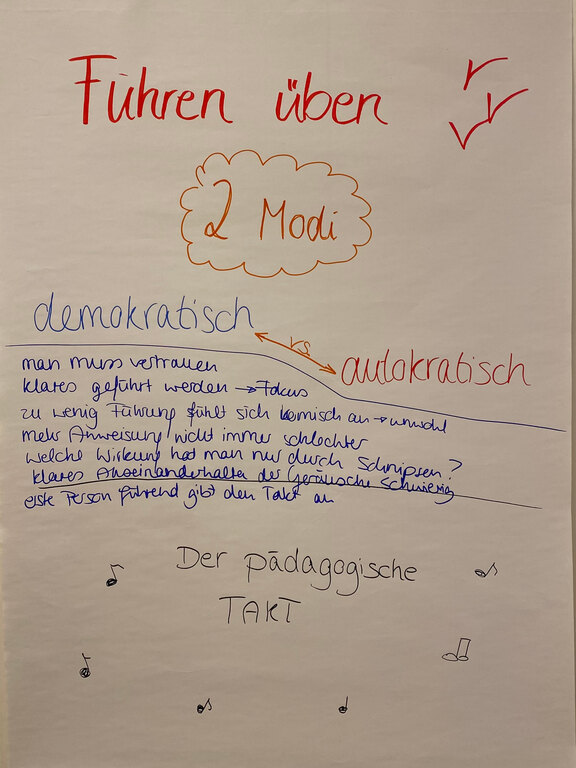 Führen üben
2 Modi
demokratisch
vs
autokratisch
man muss vertrauen
klares geführt werden → Fokus
zu wenig Führung fühlt sich komisch an → unwohl
mehr Anweisung nicht immer schlechter
welche Wirkung hat man nur durch Schnipsen?
klares Auseinanderhalten der Geräusche schwierig
erste Person führend gibt den Takt an
Der pädagogische
TAKT